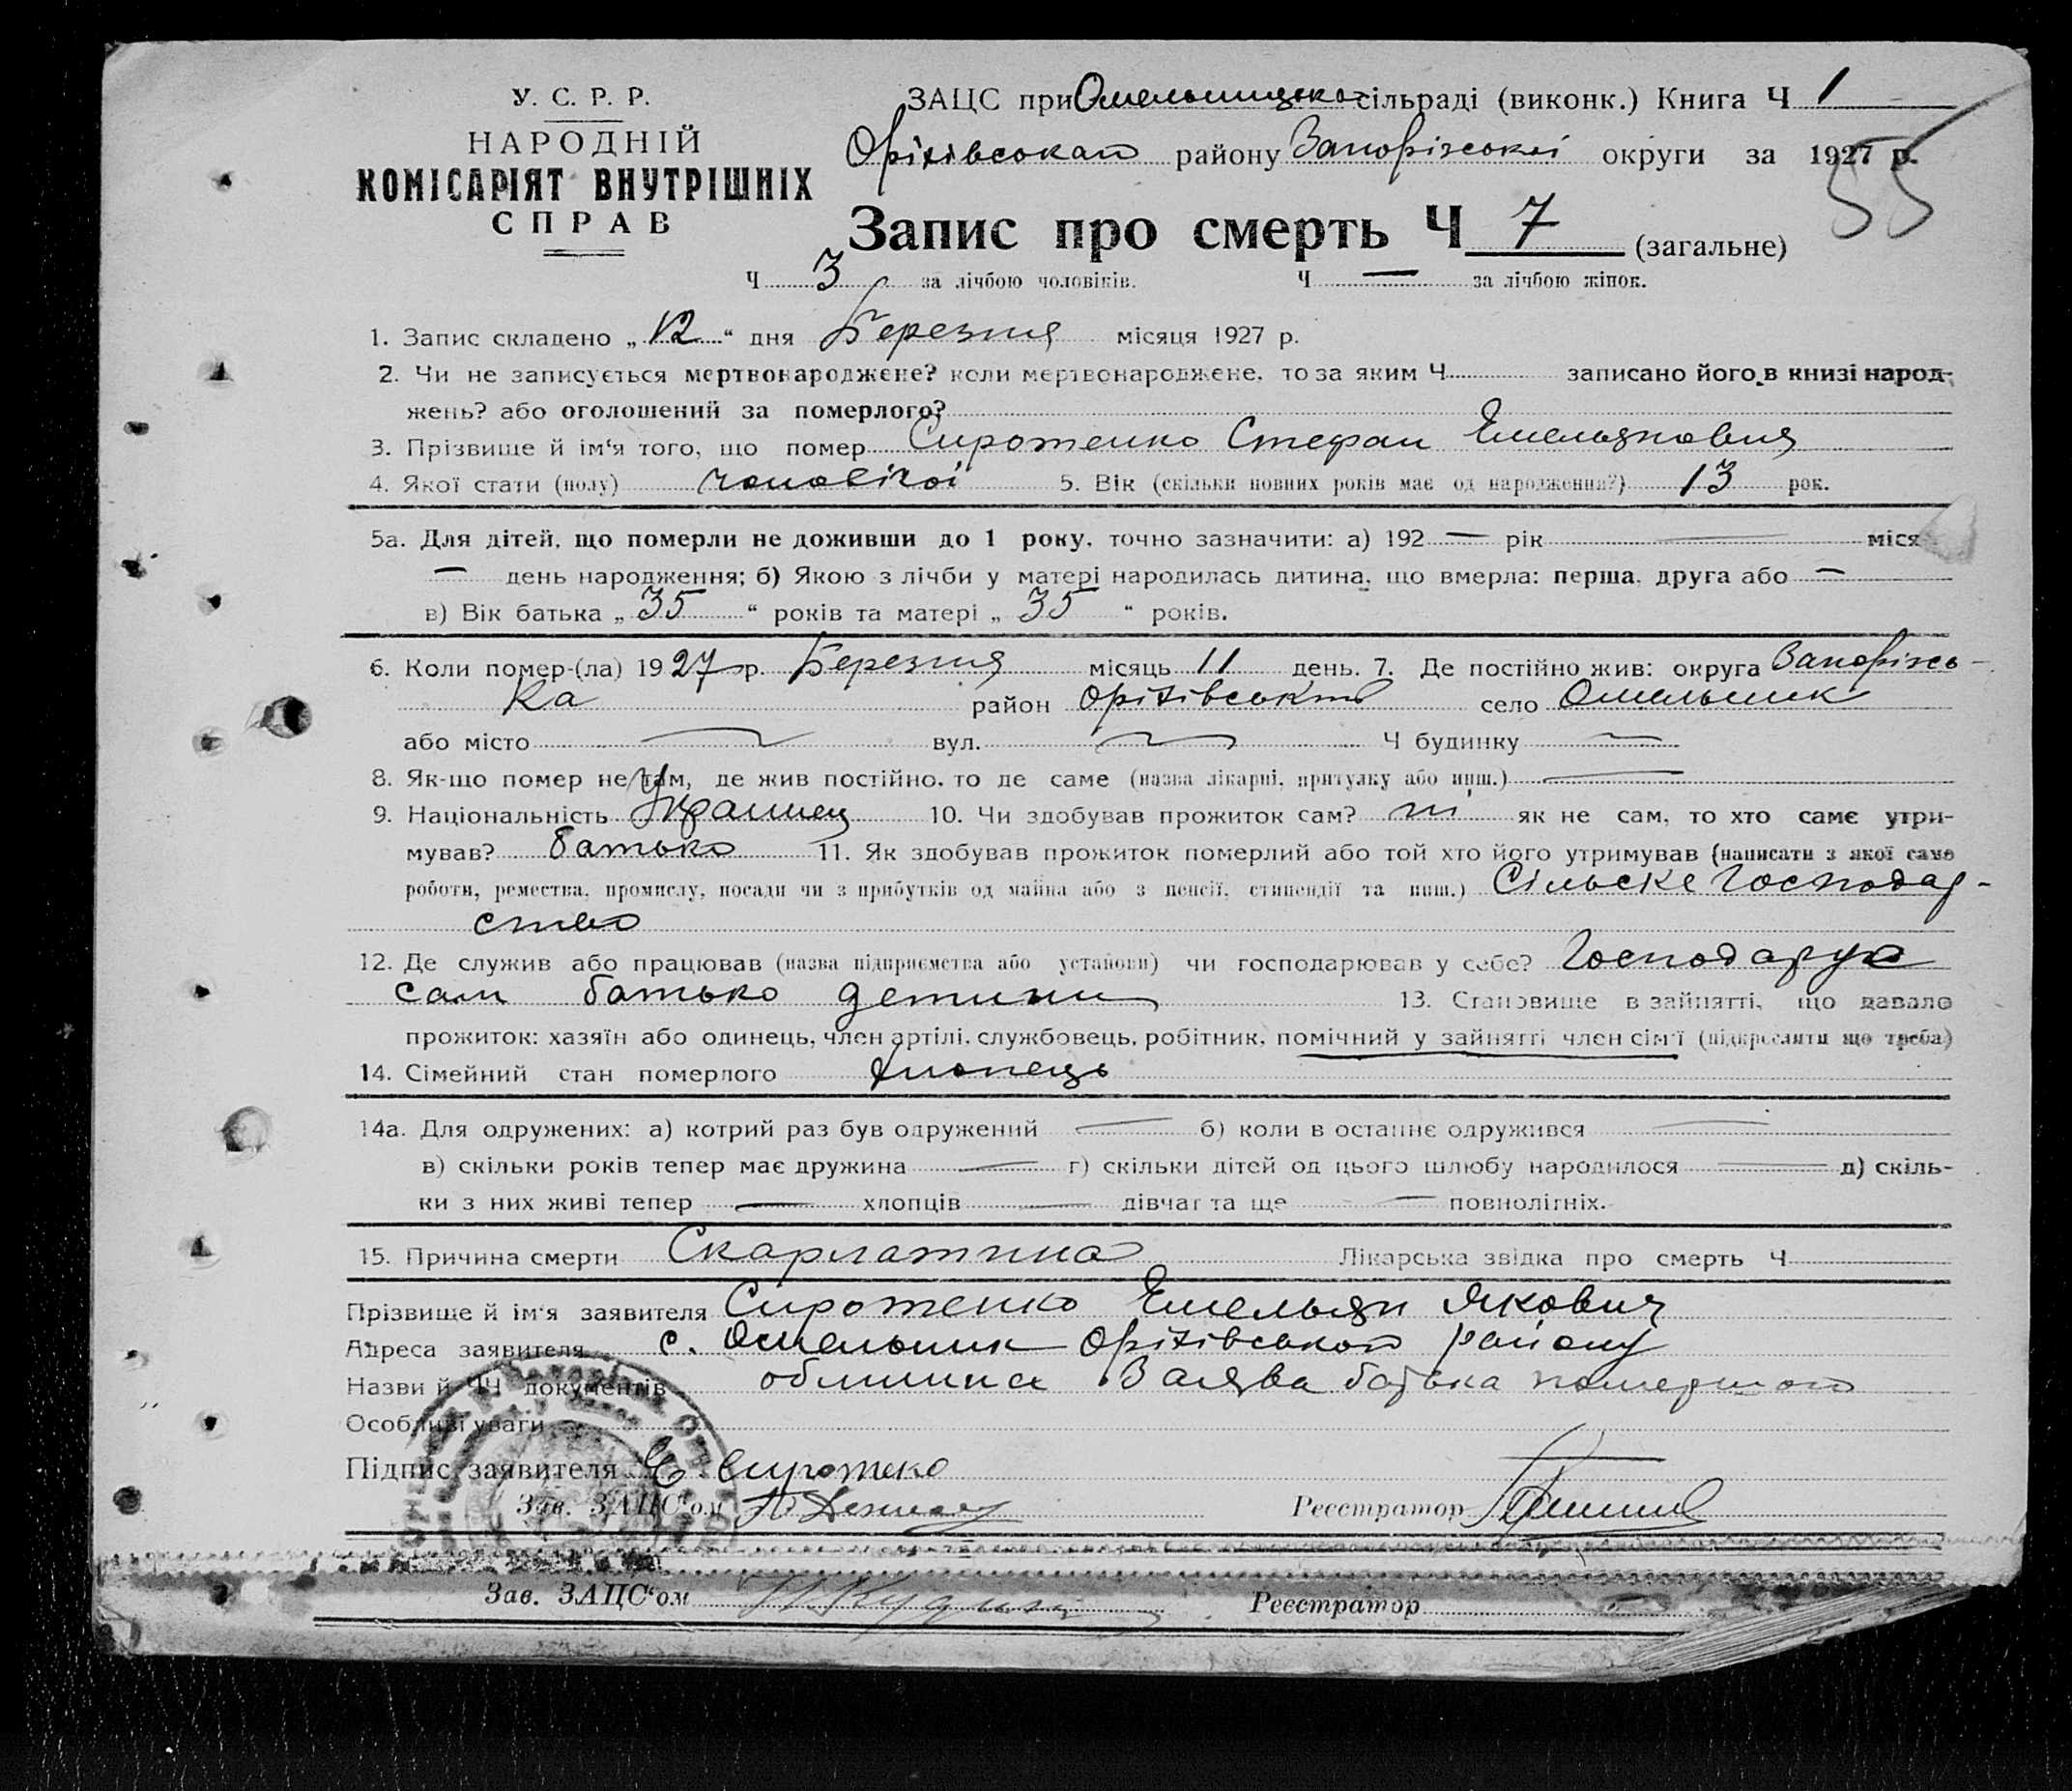 У. С. Р. Р.
НАРОДНІЙ
КОМІСАРІЯТ ВНУТРІШНІХ
СПРАВ
ЗАЦС при Омельницько сільраді (виконк.) Книга Ч 1
Оріхівського району Запорізської округи за 1927 р.
55
Запис про смерть Ч 7 (загальне)
Ч 3 за лічбою чоловіків. Ч — за лічбою жінок.
1. Запис складено „ 12 “ дня Березня місяця 1927 р.
2. Чи не записується мертвонароджене? коли мертвонароджене, то за яким Ч записано його в книзі народ-
жень? або оголошений за померлого?
3. Прізвище й ім‘я того, що помер Сиротенко Стефан Емельянович
4. Якої стати (полу) чоловічої 5. Вік (скільки повних років має од народження?) 13 рок.
5а. Для дітей, що померли не доживши до 1 року, точно зазначити: а) 192 — рік — міся
— день народження; б) Якою з лічби у матері народилась дитина, що вмерла: перша, друга або —
в) Вік батька „ 35 “ років та матері „ 35 “ років.
6. Коли помер-(ла) 1927 р. Березня місяць 11 день. 7. Де постійно жив: округа Запорізсь-
ка район Оріхівського село Омельник
або місто — вул. — Ч будинку —
8. Як-що помер не там, де жив постійно, то де саме (назва лікарні, притулку або инш.) —
9. Національність Українец 10. Чи здобував прожиток сам? ні як не сам, то хто саме утри-
мував? батько 11. Як здобував прожиток померлий або той хто його утримував (написати з якої саме
роботи, ремества, промислу, посади чи з прибутків од майна або з пенсії, стипендії та инш.) Сільске Господар-
ство
12. Де служив або працював (назва підприємства або установи) чи господарював у себе? Господарує
сам батько детини 13. Становище в зайнятті, що давало
прожиток: хазяїн або одинець, член артілі, службовець, робітник, помічний у зайнятті член сім‘ї (підкреслити що треба)
14. Сімейний стан померлого хлопець
14а. Для одружених: а) котрий раз був одружений — б) коли в останнє одружився —
в) скільки років тепер має дружина — г) скільки дітей од цього шлюбу народилося — д) скіль-
ки з них живі тепер — хлопців — дівчат та ще — повнолітніх.
15. Причина смерти Скарлатина Лікарська звідка про смерть Ч
Прізвище й ім‘я заявителя Сиротенко Емельян Якович
Адреса заявителя с. Омельник Оріхівського району
Назви й ЧЧ документів Заява батька помершого
Особливі уваги
Підпис заявителя Е. Сиротеко
Зав. ЗАЦС‘ом Реєстратор
Зав. ЗАЦС‘ом Реєстратор